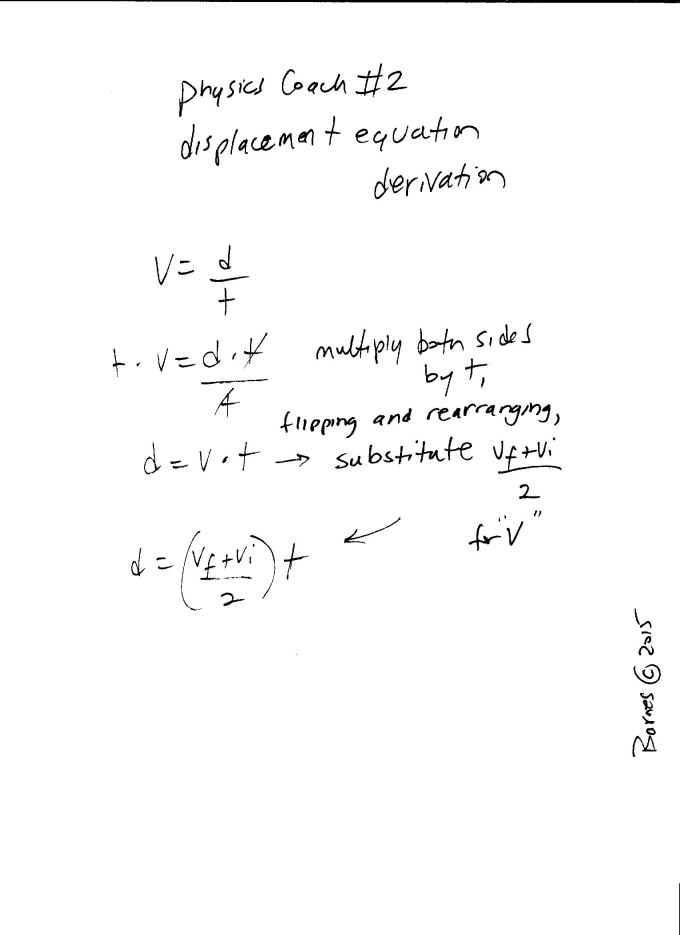 Physics Coach #2
displacement equation
derivation
V = d/t
t · V = d · t/t multiply both sides
by t,
flipping and rearranging,
d = V · t → substitute Vf+Vi/2
for "V"
d = (Vf+Vi/2) t ←
Barnes © 2015